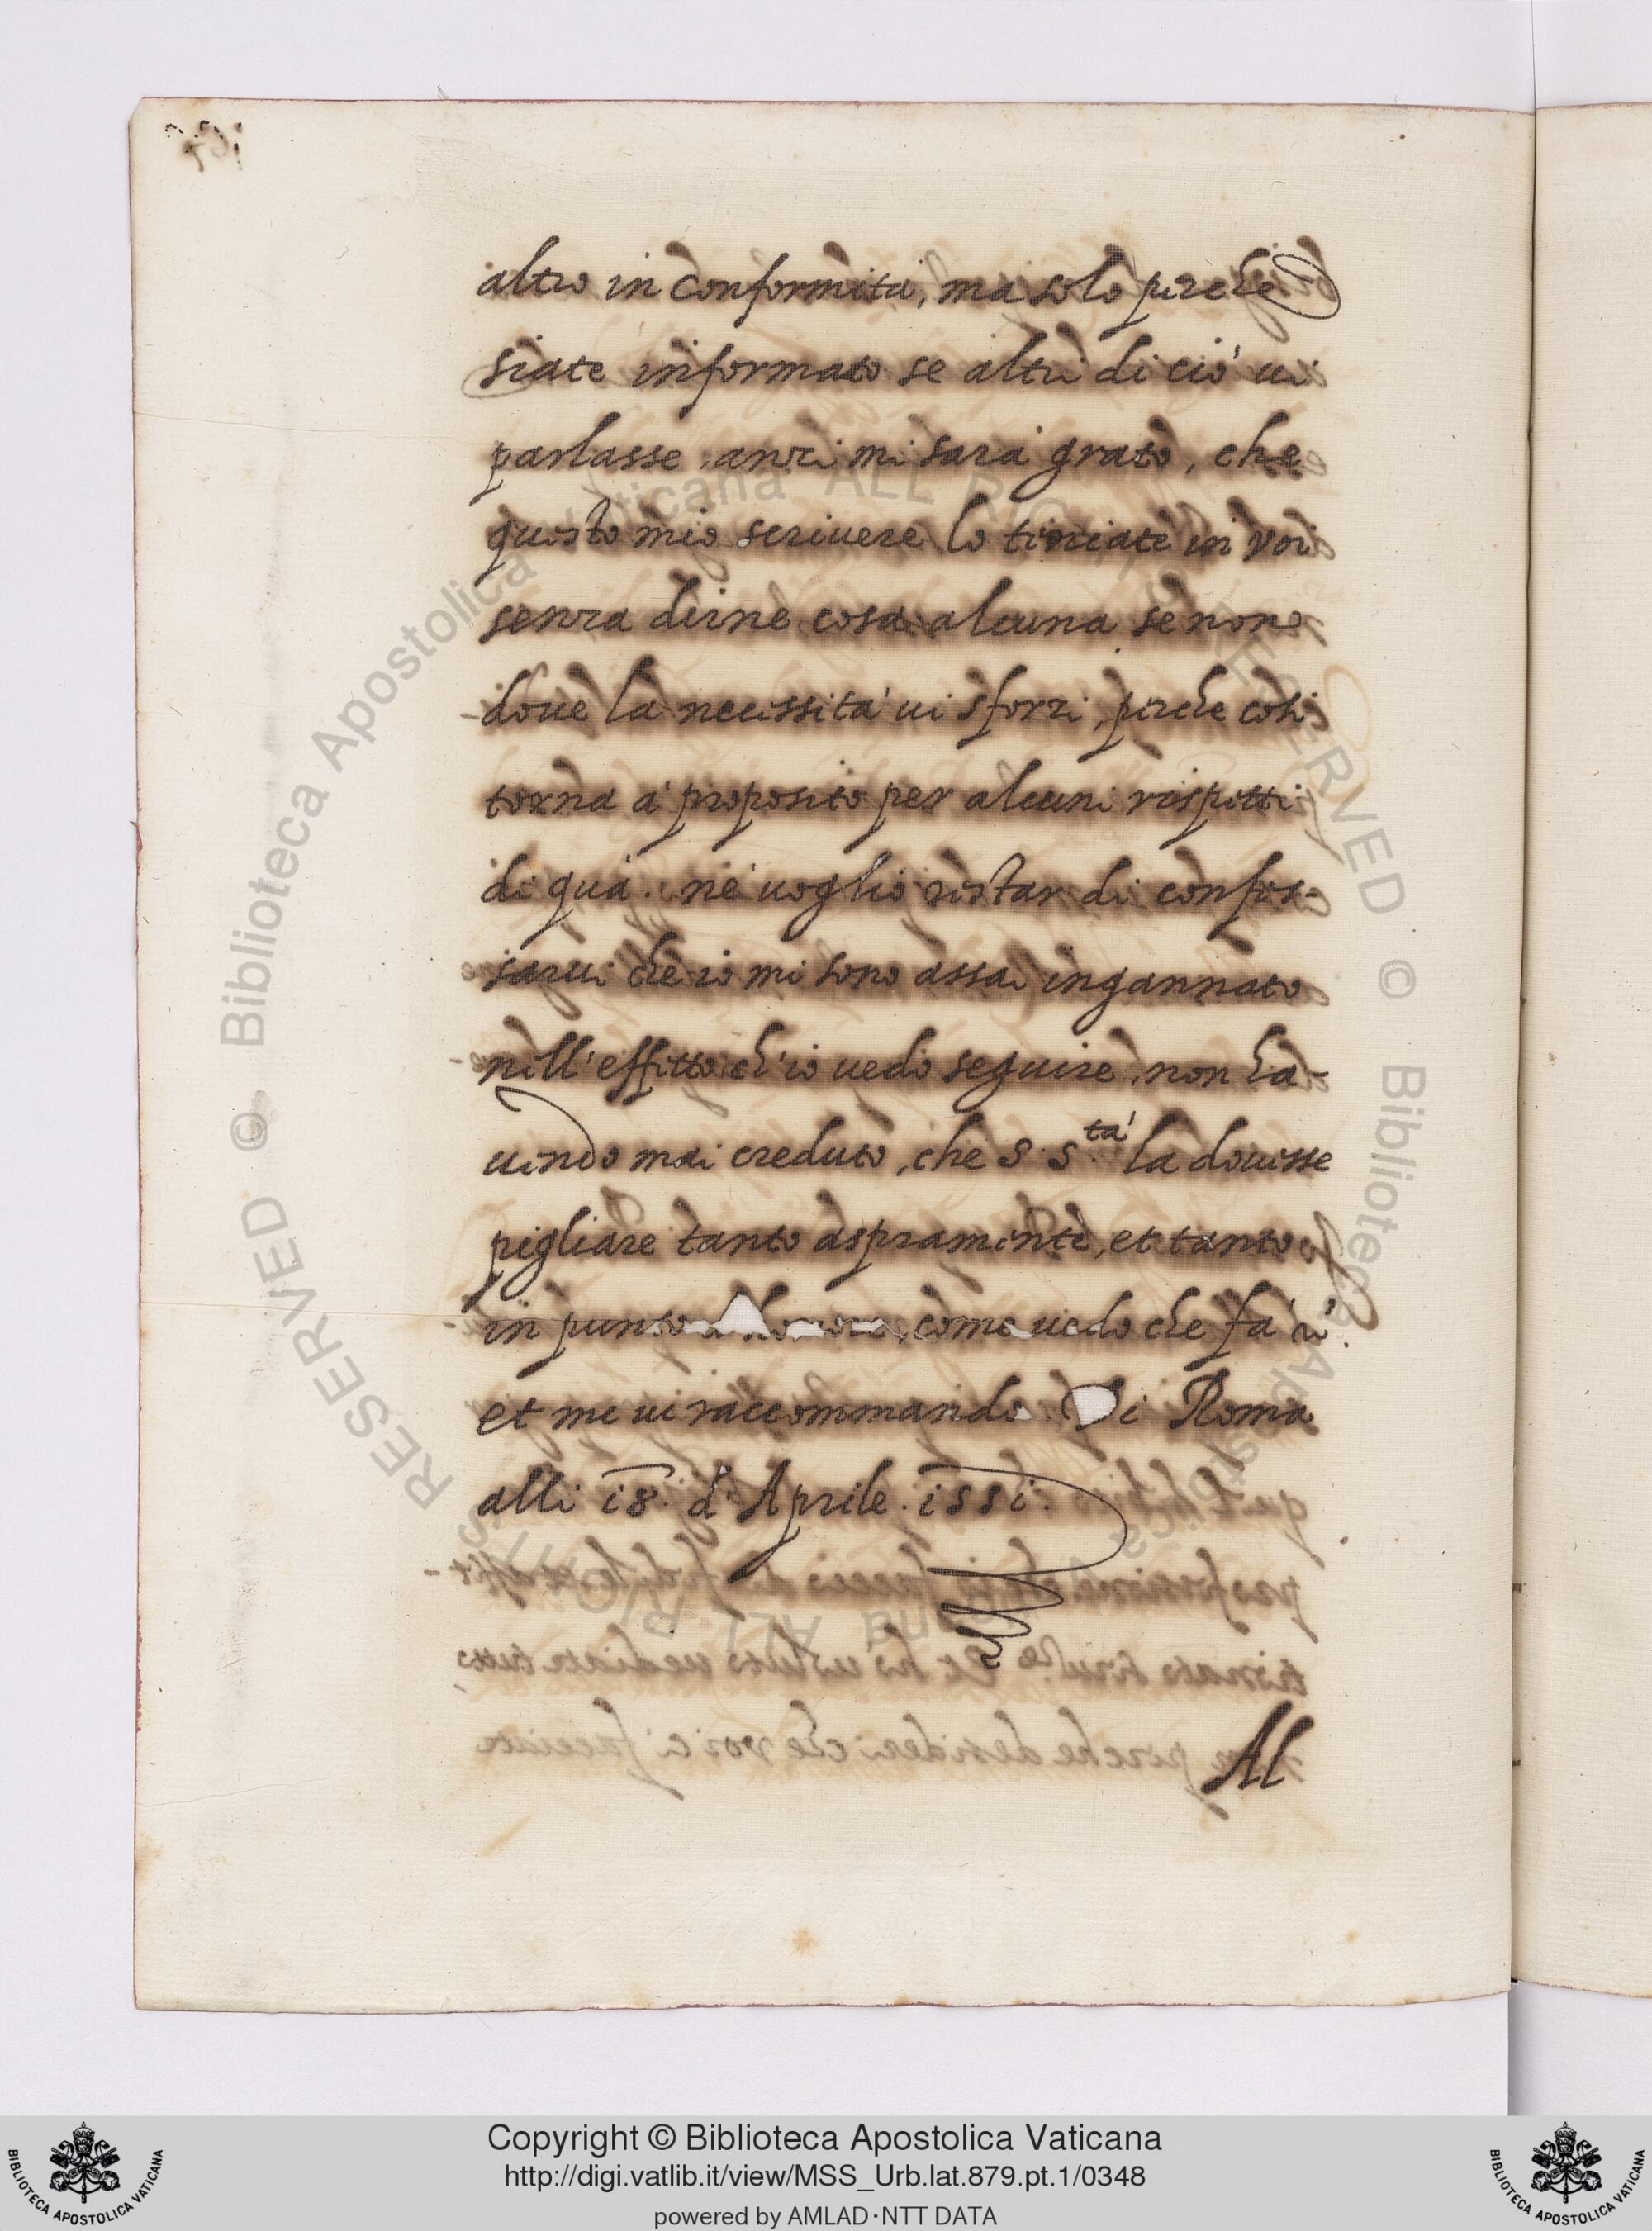 altro in conformità, ma solo perche
siate informato se altri di ciò ui
parlasse, anzi mi sarà grato, che
questo mio scriuere lo teniate in voi
senza dirne cosa alcuna se non
doue la necessità ui sforzi, perche così
torna à proposito per alcuni rispetti
di quà. nè uoglio restar di confes-
sarui che io mi sono assai ingannato
nell'effetto ch'io uedo seguire, non ha-
uendo mai creduto, che S. S.tà la douesse
pigliare tanto aspramente, et tanto
in punto honore, come uedo che fà
et me ui raccommando. Di Roma
alli i8. di Aprile. i55i.
Al
© Biblioteca Apostolica Vaticana ALL RIGHTS RESERVED © Biblioteca Apostolica Vaticana ALL RIGHTS RESERVED
Copyright © Biblioteca Apostolica Vaticana
http://digi.vatlib.it/view/MSS_Urb.lat.879.pt.1/0348
powered by AMLAD·NTT DATA
BIBLIOTECA APOSTOLICA VATICANA
BIBLIOTECA APOSTOLICA VATICANA